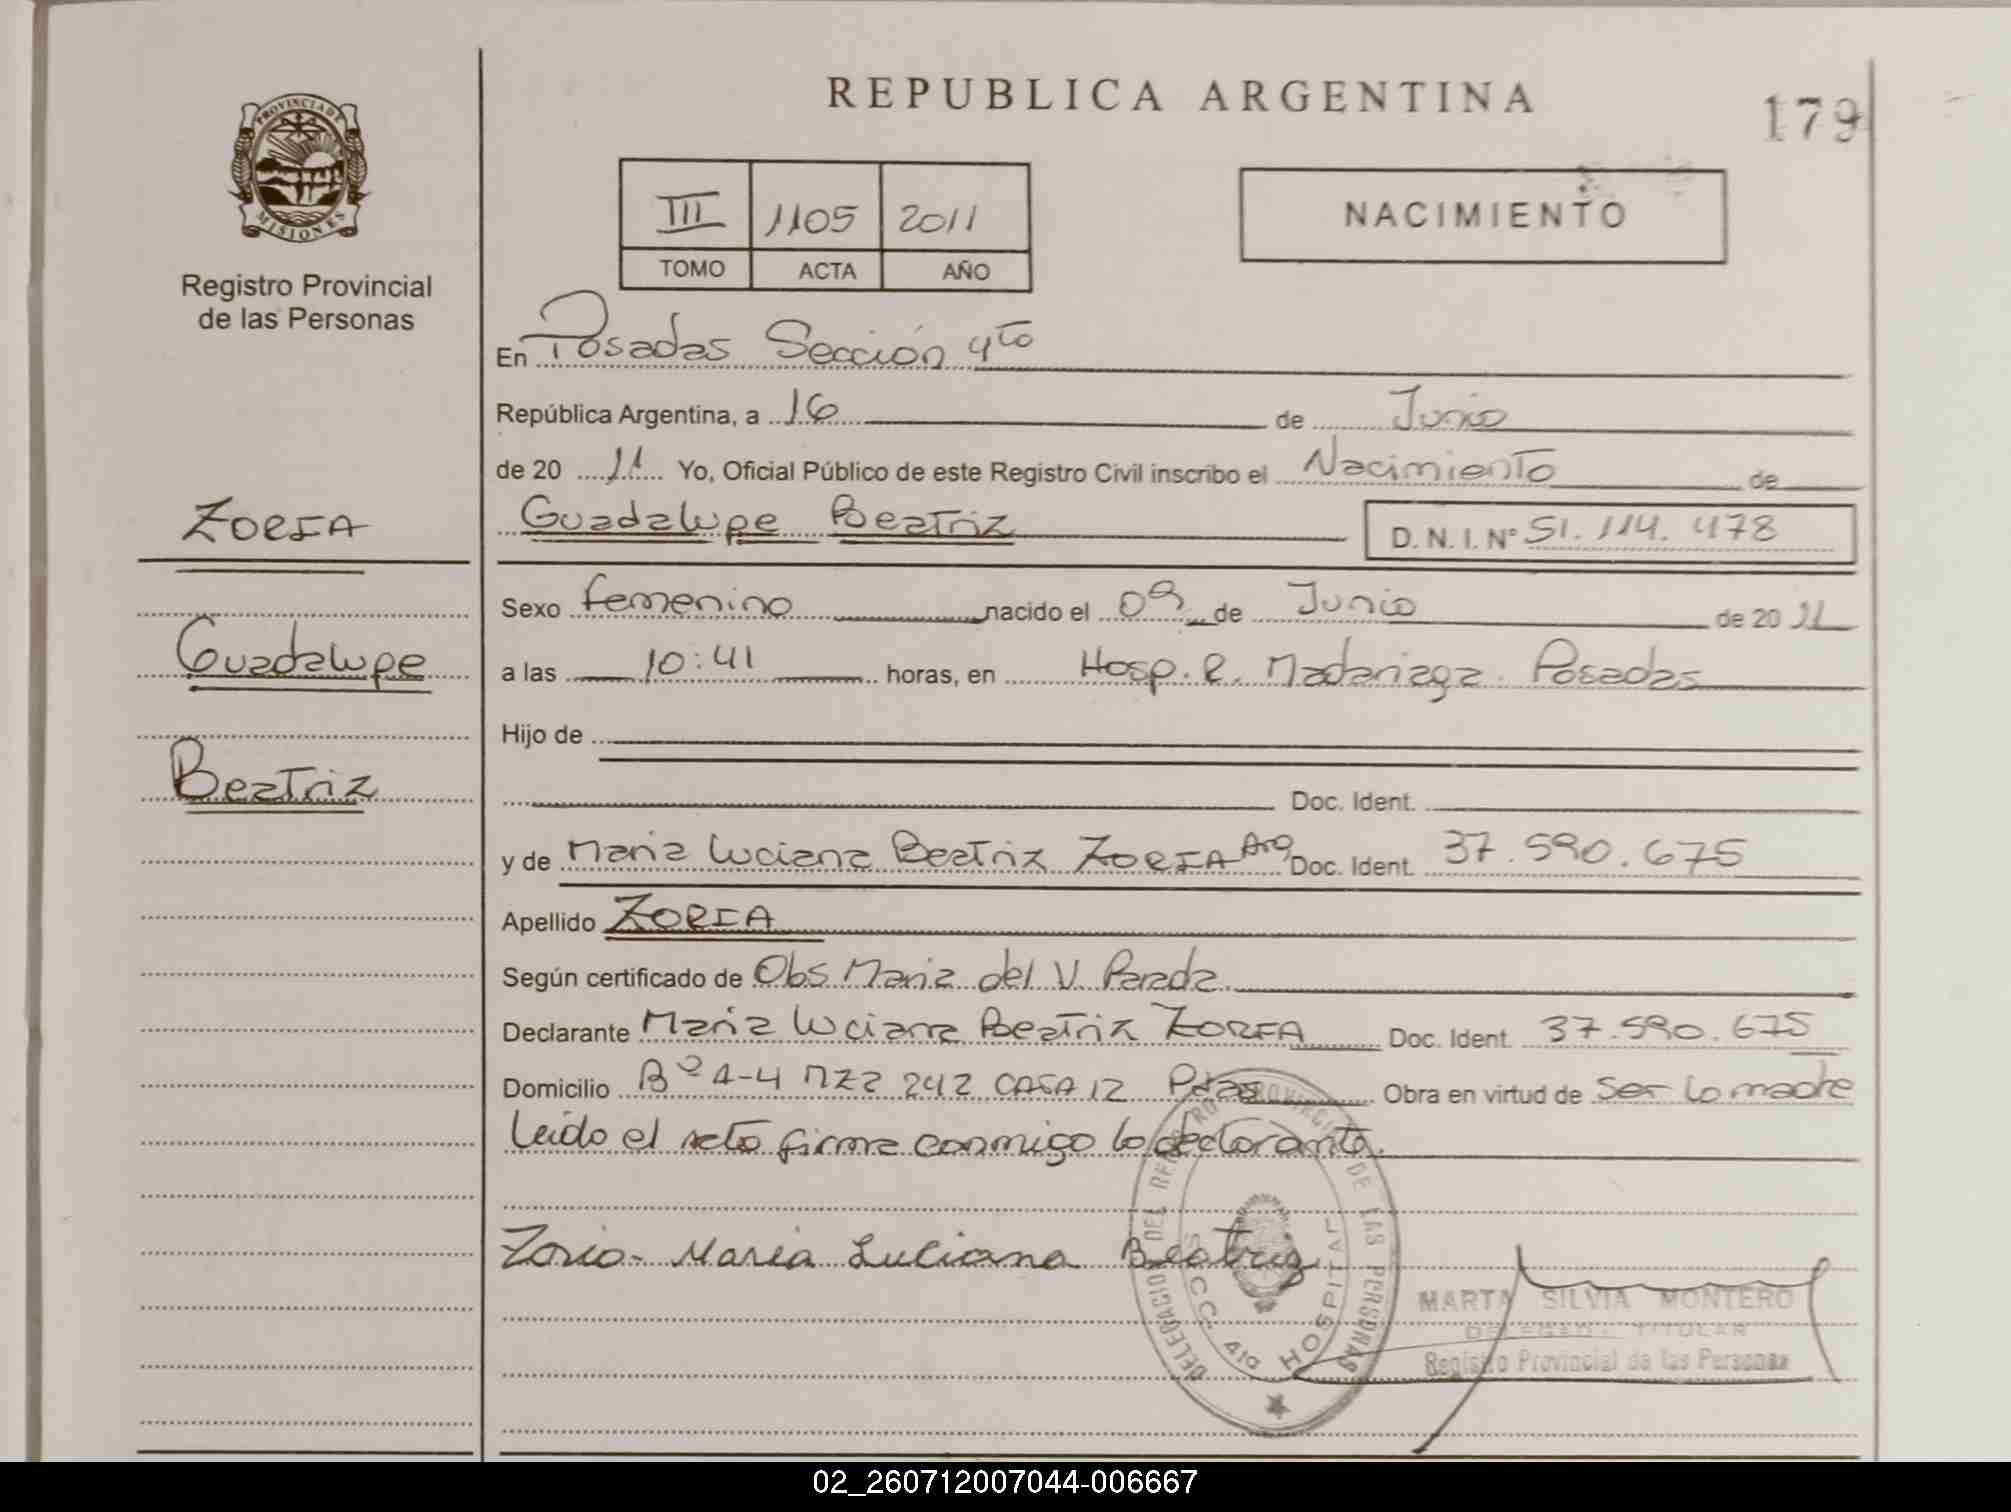 REPUBLICA ARGENTINA
179
PROVINCIA DE MISIONES
Registro Provincial
de las Personas
III 1105 2011
TOMO ACTA AÑO
NACIMIENTO
En Posadas Sección 4to
República Argentina, a 16 de Junio
de 20 11 Yo, Oficial Público de este Registro Civil inscribo el Nacimiento de
Guadalupe Beatriz D. N. I. Nº 51.114.478
ZORIA
Guadalupe
Beatriz
Sexo femenino nacido el 09 de Junio de 20 11
a las 10:41 horas, en Hosp. R. Madariaga. Posadas
Hijo de
Doc. Ident.
y de Maria Luciana Beatriz ZORIA Arg Doc. Ident. 37.590.675
Apellido ZORIA
Según certificado de Obs Maria del V. Parada
Declarante Maria Luciana Beatriz ZORIA Doc. Ident. 37.590.675
Domicilio Bº A-4 MZ2 242 CASA 12 Pdas Obra en virtud de ser la madre
Leido el acta firma conmigo la declarante.
Zoria- Maria Luciana Beatriz
DELEGACION DEL REGISTRO PROVINCIAL DE LAS PERSONAS
SECC. 4ta HOSPITAL
MARTA SILVIA MONTERO
DELEGADA TITULAR
Registro Provincial de las Personas
02_260712007044-006667